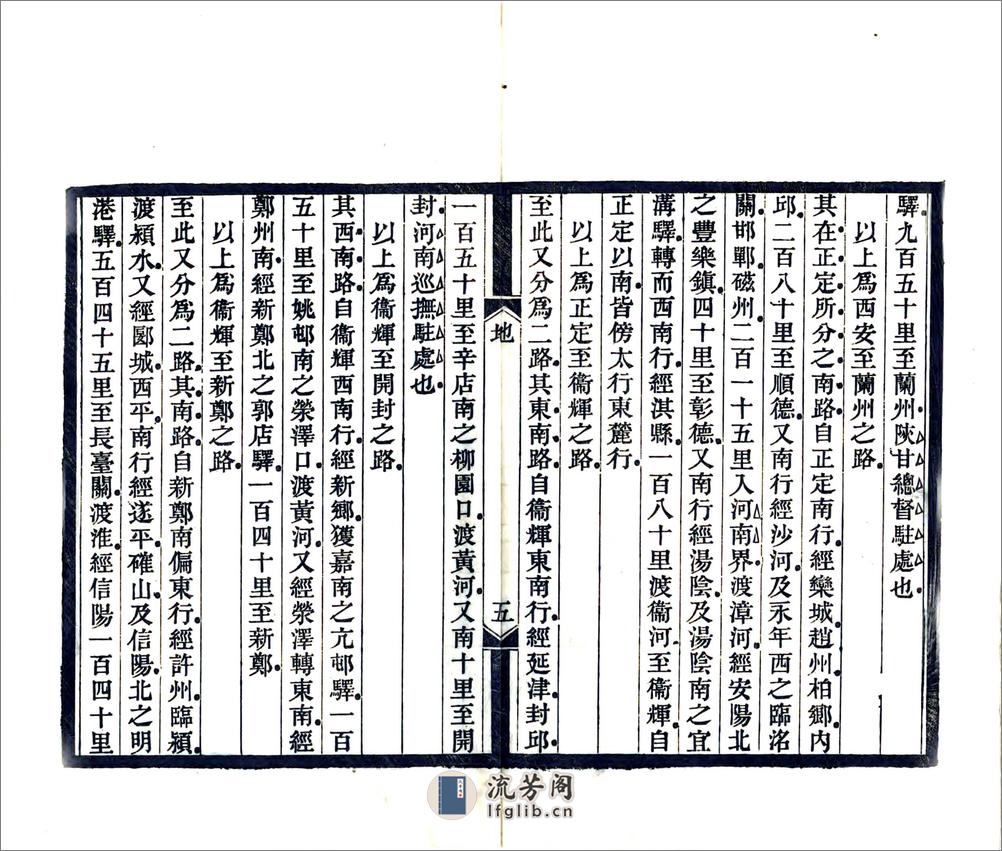 驛九百五十里至蘭州陝甘總督駐處也
以上爲西安至蘭州之路
其在正定所分之南路自正定南行經欒城趙州柏鄉內
邱二百八十里至順德又南行經沙河及永年西之臨洺
關邯鄲磁州二百一十五里入河南界渡漳河經安陽北
之豐樂鎮四十里至彰德又南行經湯陰及湯陰南之宜
溝驛轉而西南行經淇縣一百八十里渡衞河至衞輝自
正定以南皆傍太行東麓行
以上爲正定至衞輝之路
至此又分爲二路其東南路自衞輝東南行經延津封邱
地
五
一百五十里至辛店南之柳園口渡黃河又南十里至開
封河南巡撫駐處也
以上爲衞輝至開封之路
其西南路自衞輝西南行經新鄉獲嘉南之亢邨驛一百
五十里至姚邨南之滎澤口渡黃河又經滎澤轉東南經
鄭州南經新鄭北之郭店驛一百四十里至新鄭
以上爲衞輝至新鄭之路
至此又分爲二路其南路自新鄭南偏東行經許州臨潁
渡潁水又經郾城西平南行經遂平確山及信陽北之明
港驛五百四十五里至長臺關渡淮經信陽一百四十里
流芳阁
lfglib.cn